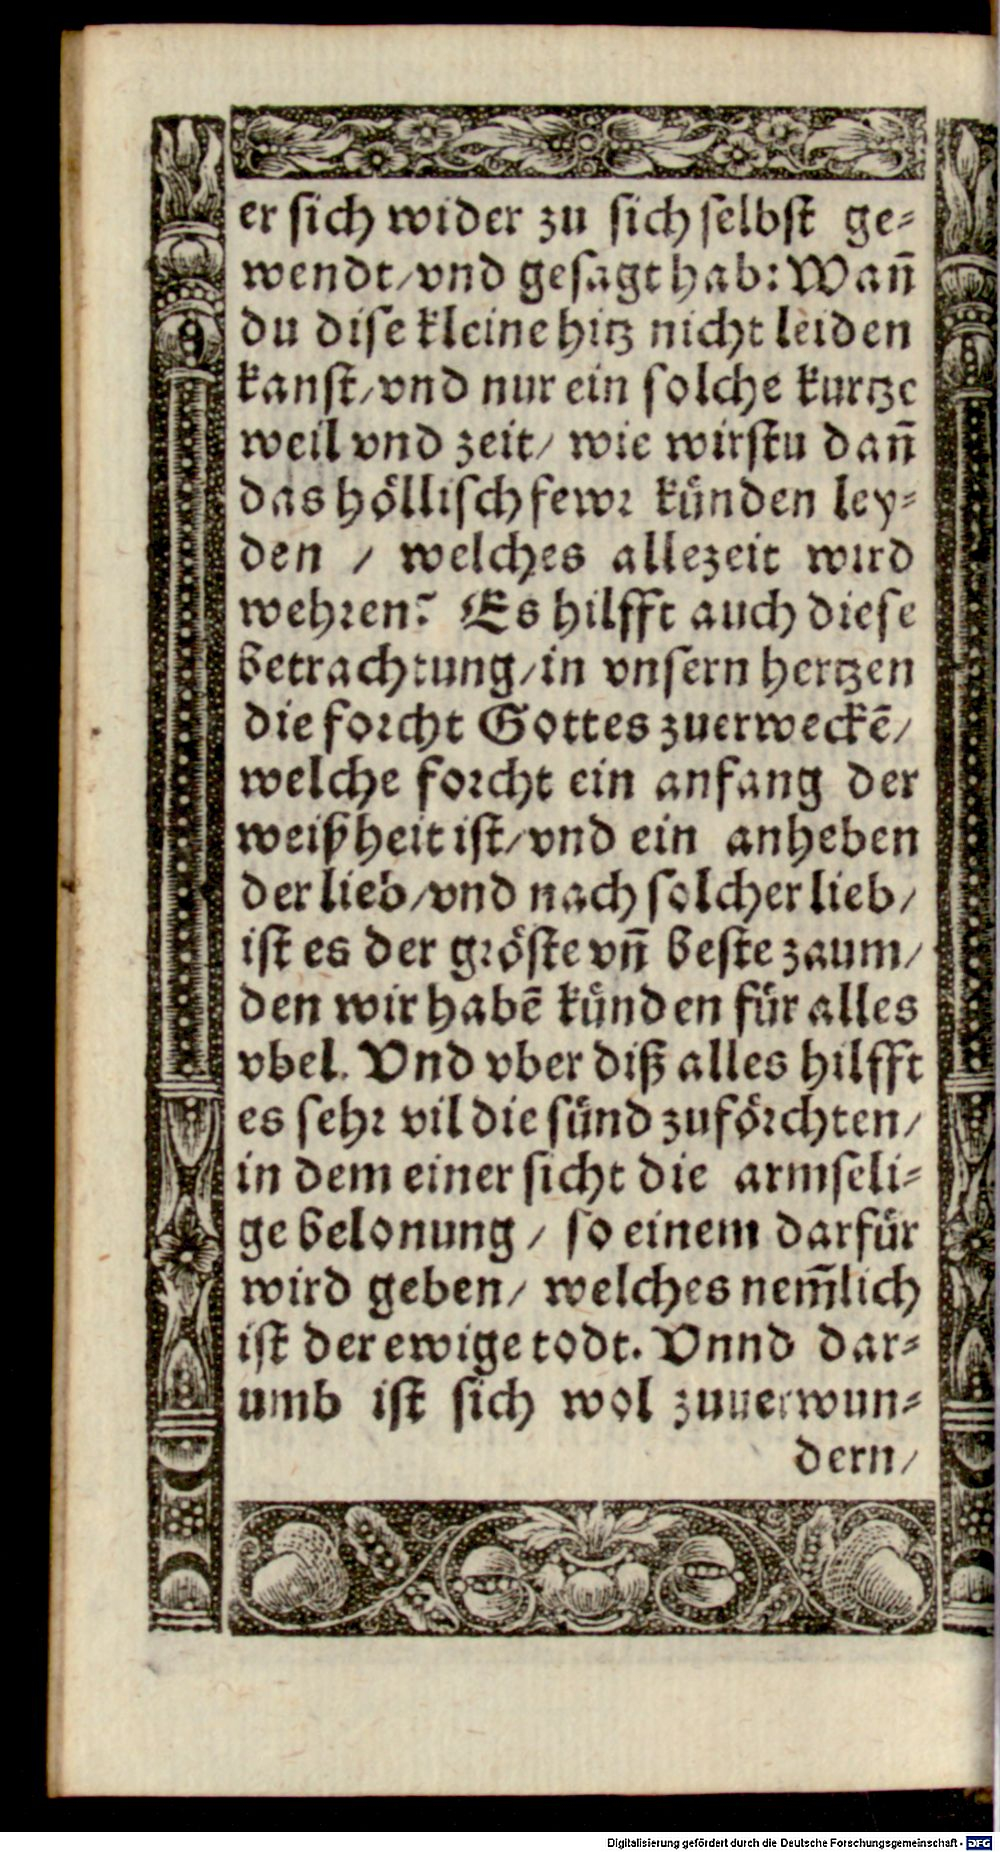 er sich wider zu sich selbst ge-
wendt/vnd gesagt hab: Wañ
du dise kleine hitz nicht leiden
kanst/vnd nur ein solche kurtze
weil vnd zeit/ wie wirstu dañ
das höllisch fewr künden ley-
den / welches allezeit wird
wehren? Es hilfft auch diese
betrachtung/in vnsern hertzen
die forcht Gottes zuerweckē/
welche forcht ein anfang der
weißheit ist/vnd ein anheben
der lieb/vnd nach solcher lieb/
ist es der gröste vñ beste zaum/
den wir habē künden für alles
vbel. Vnd vber diß alles hilfft
es sehr vil die sünd zuförchten/
in dem einer sicht die armseli-
ge belonung / so einem darfür
wird geben/ welches nem̄lich
ist der ewige todt. Vnnd dar-
umb ist sich wol zuuerwun-
dern/
Digitalisierung gefördert durch die Deutsche Forschungsgemeinschaft - DFG